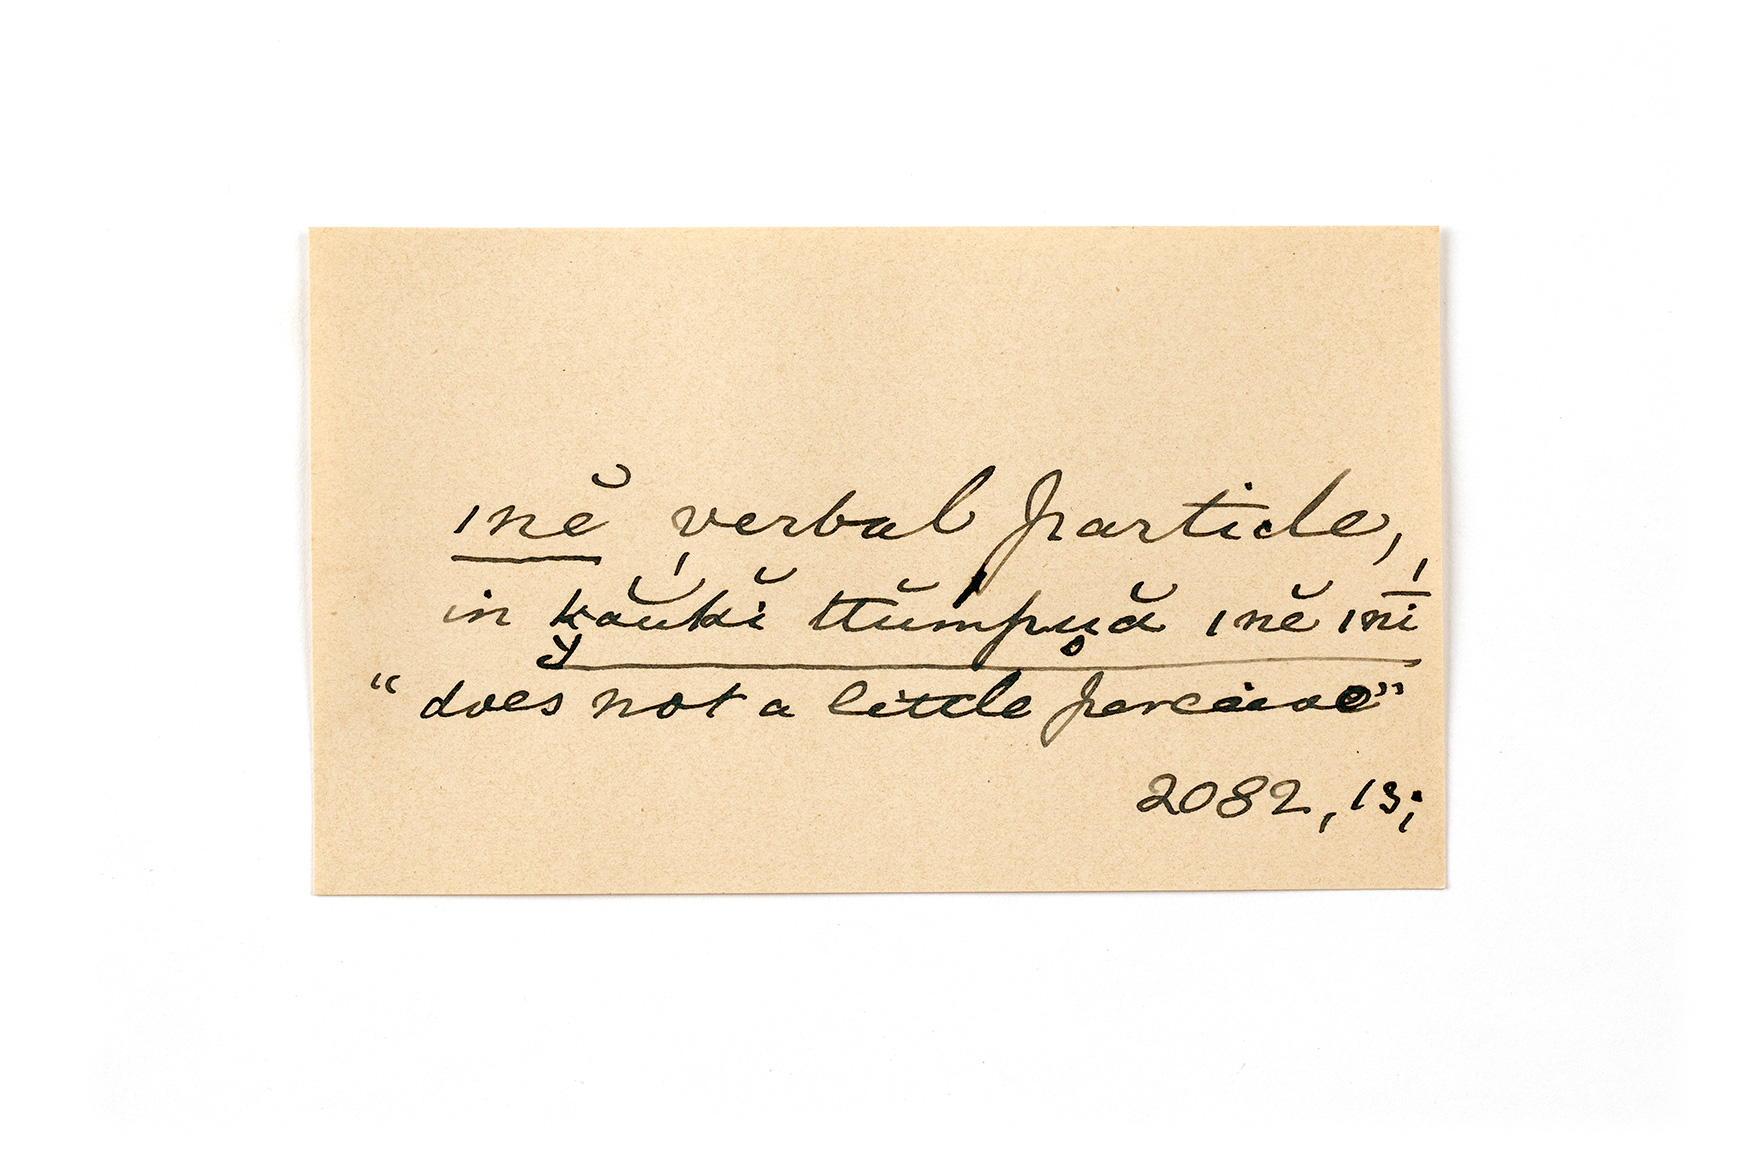 ınĕ verbal particle,
in k̯ăŭkĭ ttŭmpu̥ă ınĕ ınī́
“does not a little perceive”
2082, 13;